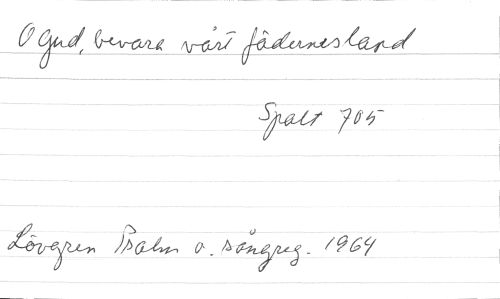 O Gud, bevara vårt fädernesland
Spalt 705
Lövgren Psalm o. sångreg. 1964